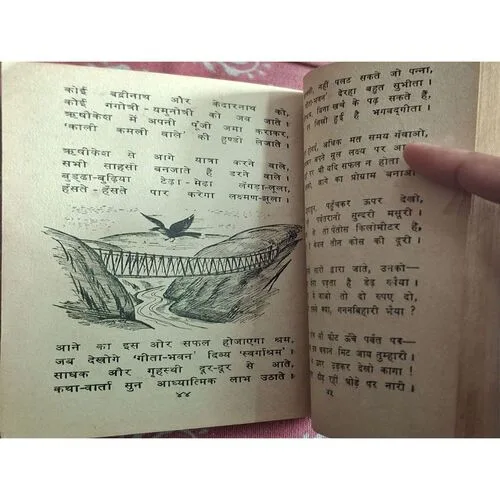 कोई बद्रीनाथ और केदारनाथ को,
कोई गंगोत्री-यमुनोत्री को जब जाते।
ऋषीकेश में अपनी पूँजी जमा कराकर,
'काली कमली वाले' की हुण्डी लेजाते।
ऋषीकेश से आगे यात्रा करने वाले,
सभी साहसी बनजाते हैं डरने वाले।
बुड्ढा-बुढ़िया टेढ़ा-मेढ़ा लंगड़ा-लूला,
हँसते-हँसते पार करेगा लक्ष्मण-झूला।
आने का इस ओर सफल होजाएगा श्रम,
जब देखोगे 'गीता-भवन' दिव्य 'स्वर्गाश्रम'।
साधक और गृहस्थी दूर-दूर से आते,
कथा-वार्ता सुन आध्यात्मिक लाभ उठाते।
४४
नहीं पलट सकते जो पन्ना,
देरहा बहुत सुभीता।
बिना खर्च के पढ़ सकते हैं,
लिखी हुई है भगवद्गीता।
अधिक मत समय गँवाओ,
मूल लक्ष्य पर
यदि सफल न होता
जाने का प्रोग्राम
पहुँचकर ऊपर देखो,
पर्वतरानी सुन्दरी मसूरी।
से पैंतीस किलोमीटर है,
केवल तीन कोस की दूरी।
द्वारा जाते, उनको—
पड़ता है डेढ़ रुपैया।
तो दो रुपए दो,
गगनबिहारी भैया?
फीट ऊँचे पर्वत पर—
मिट जाय तुम्हारी।
उड़कर देखो कागा!
रहीं घोड़े पर नारी।